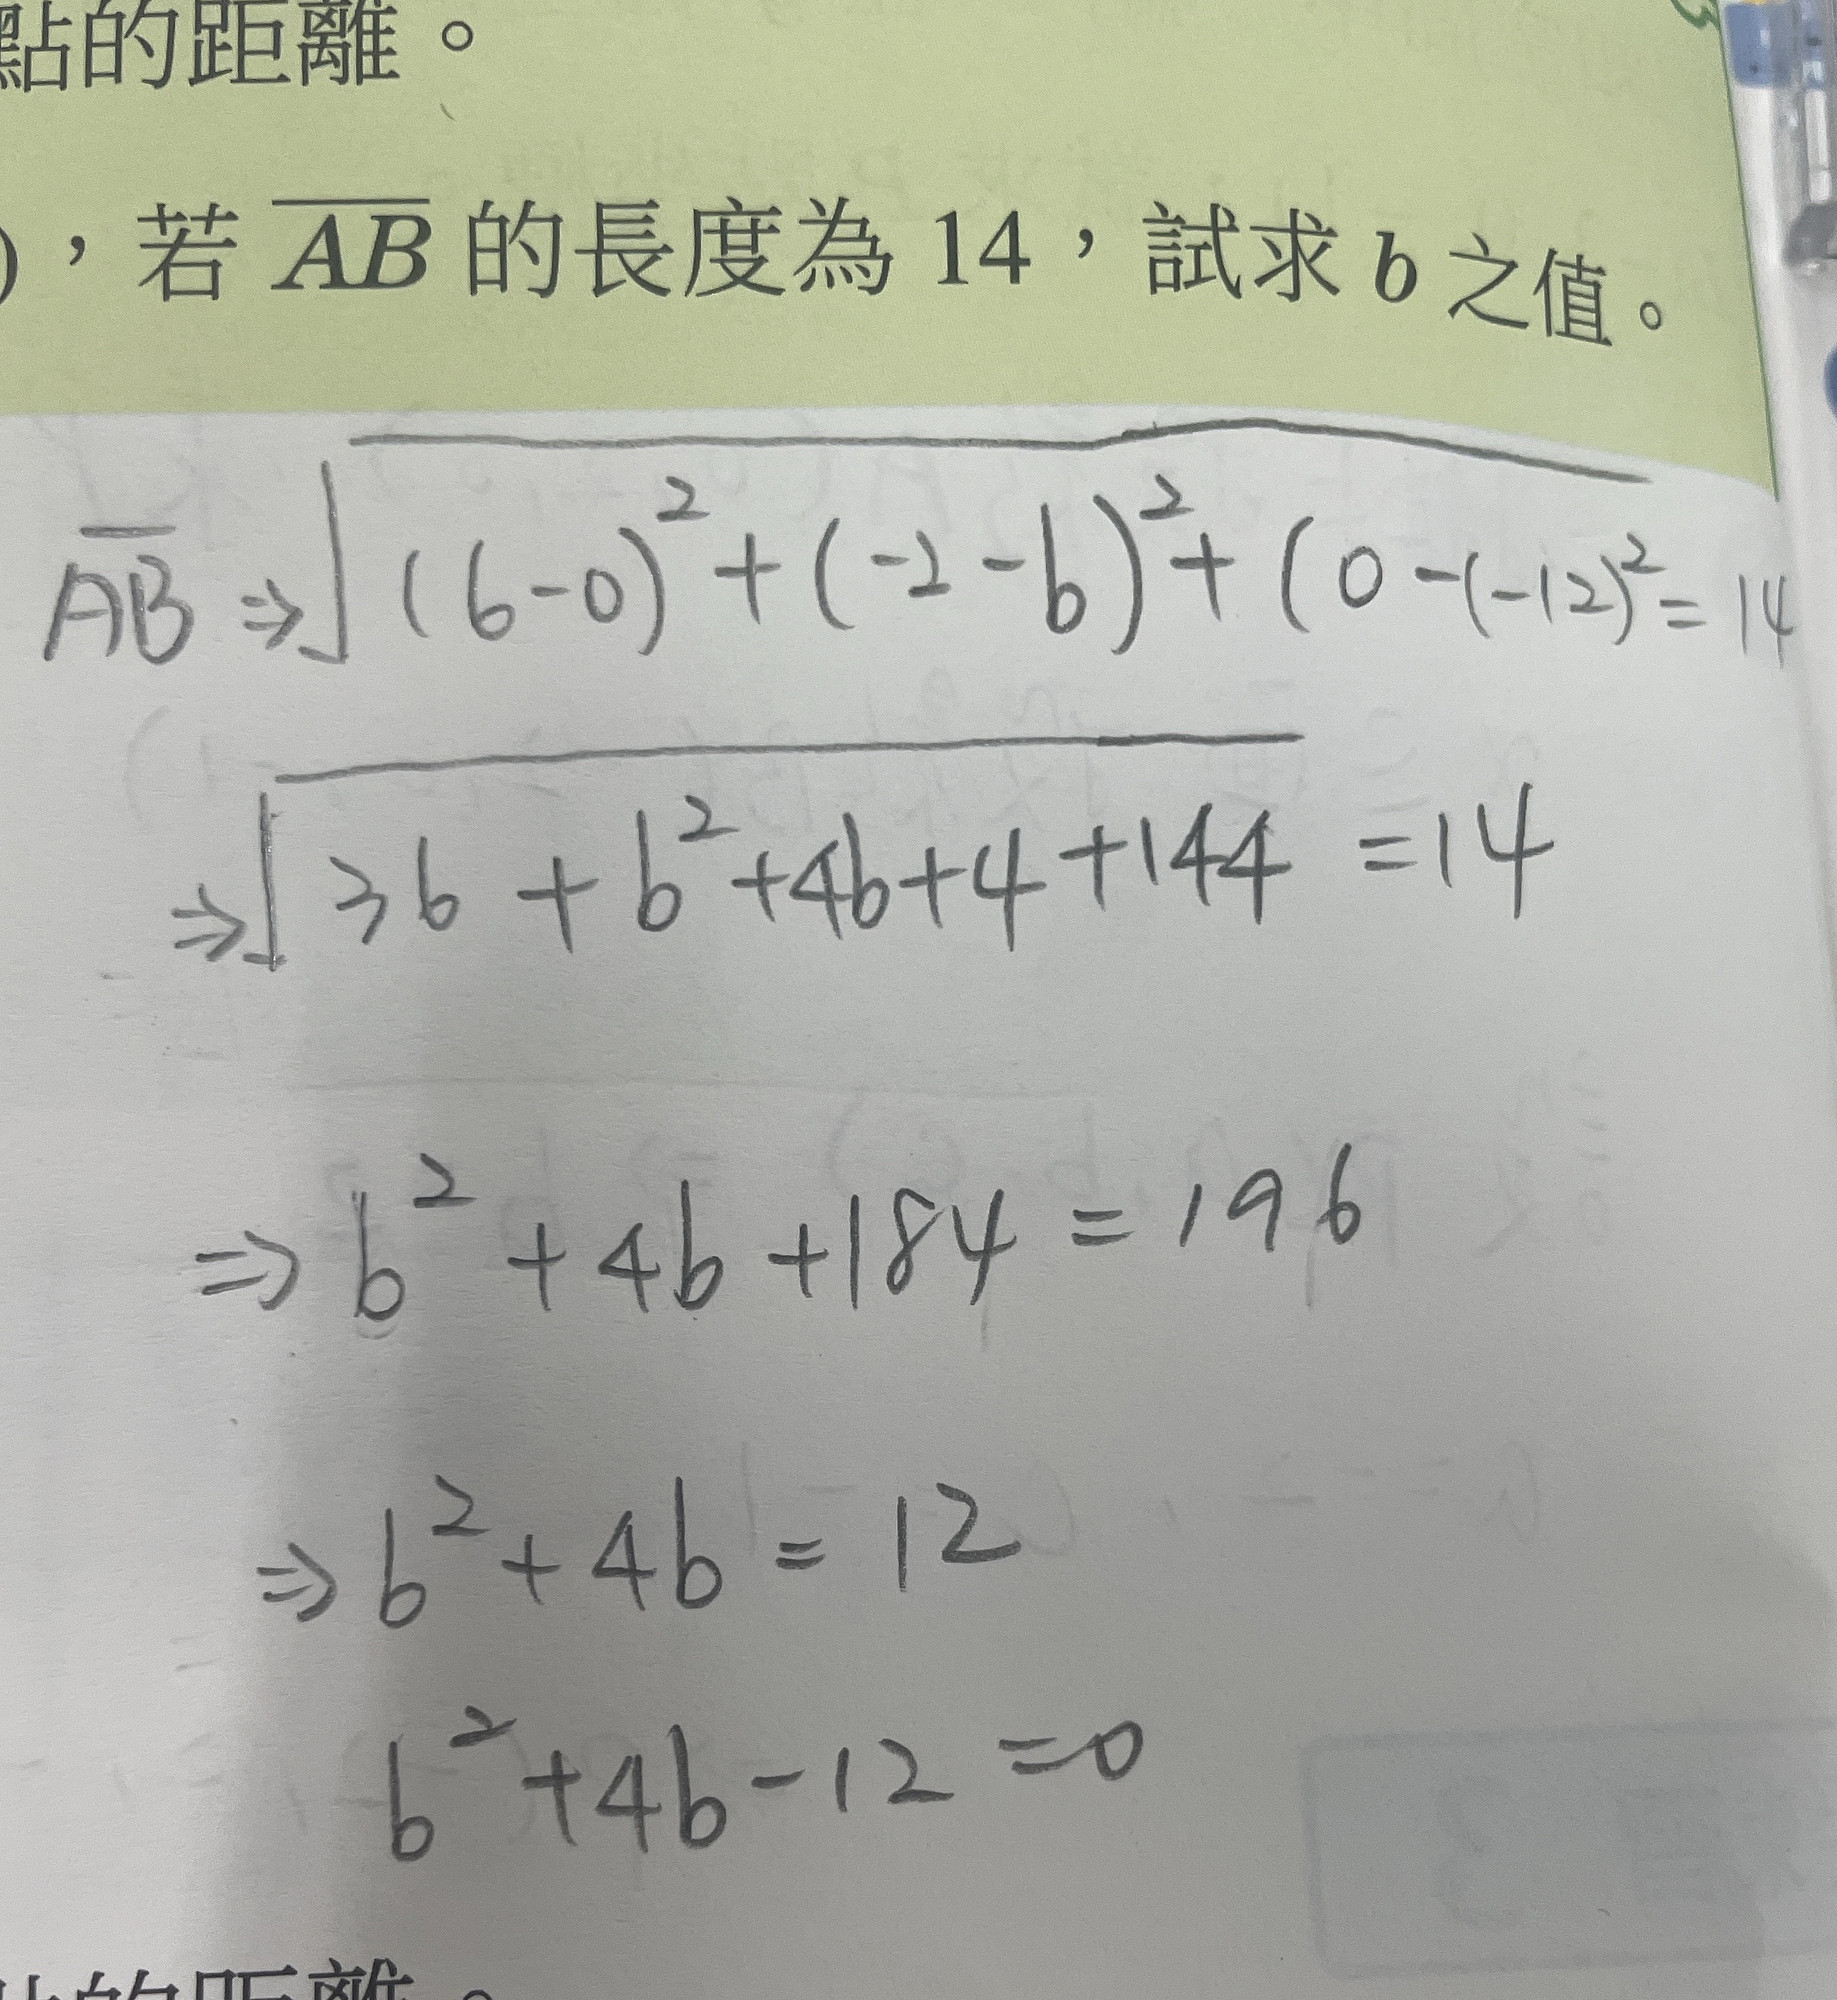 點的距離。
)，若 AB 的長度為 14，試求 b 之值。
AB ⇒ √(6-0)²+(-2-b)²+(0-(-12)²=14
⇒ √36+b²+4b+4+144 =14
⇒ b²+4b+184=196
⇒ b²+4b=12
b²+4b-12=0
的距離。